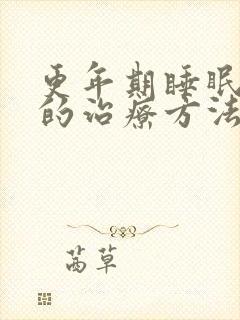 更年期睡眠
的治疗方法
茜草